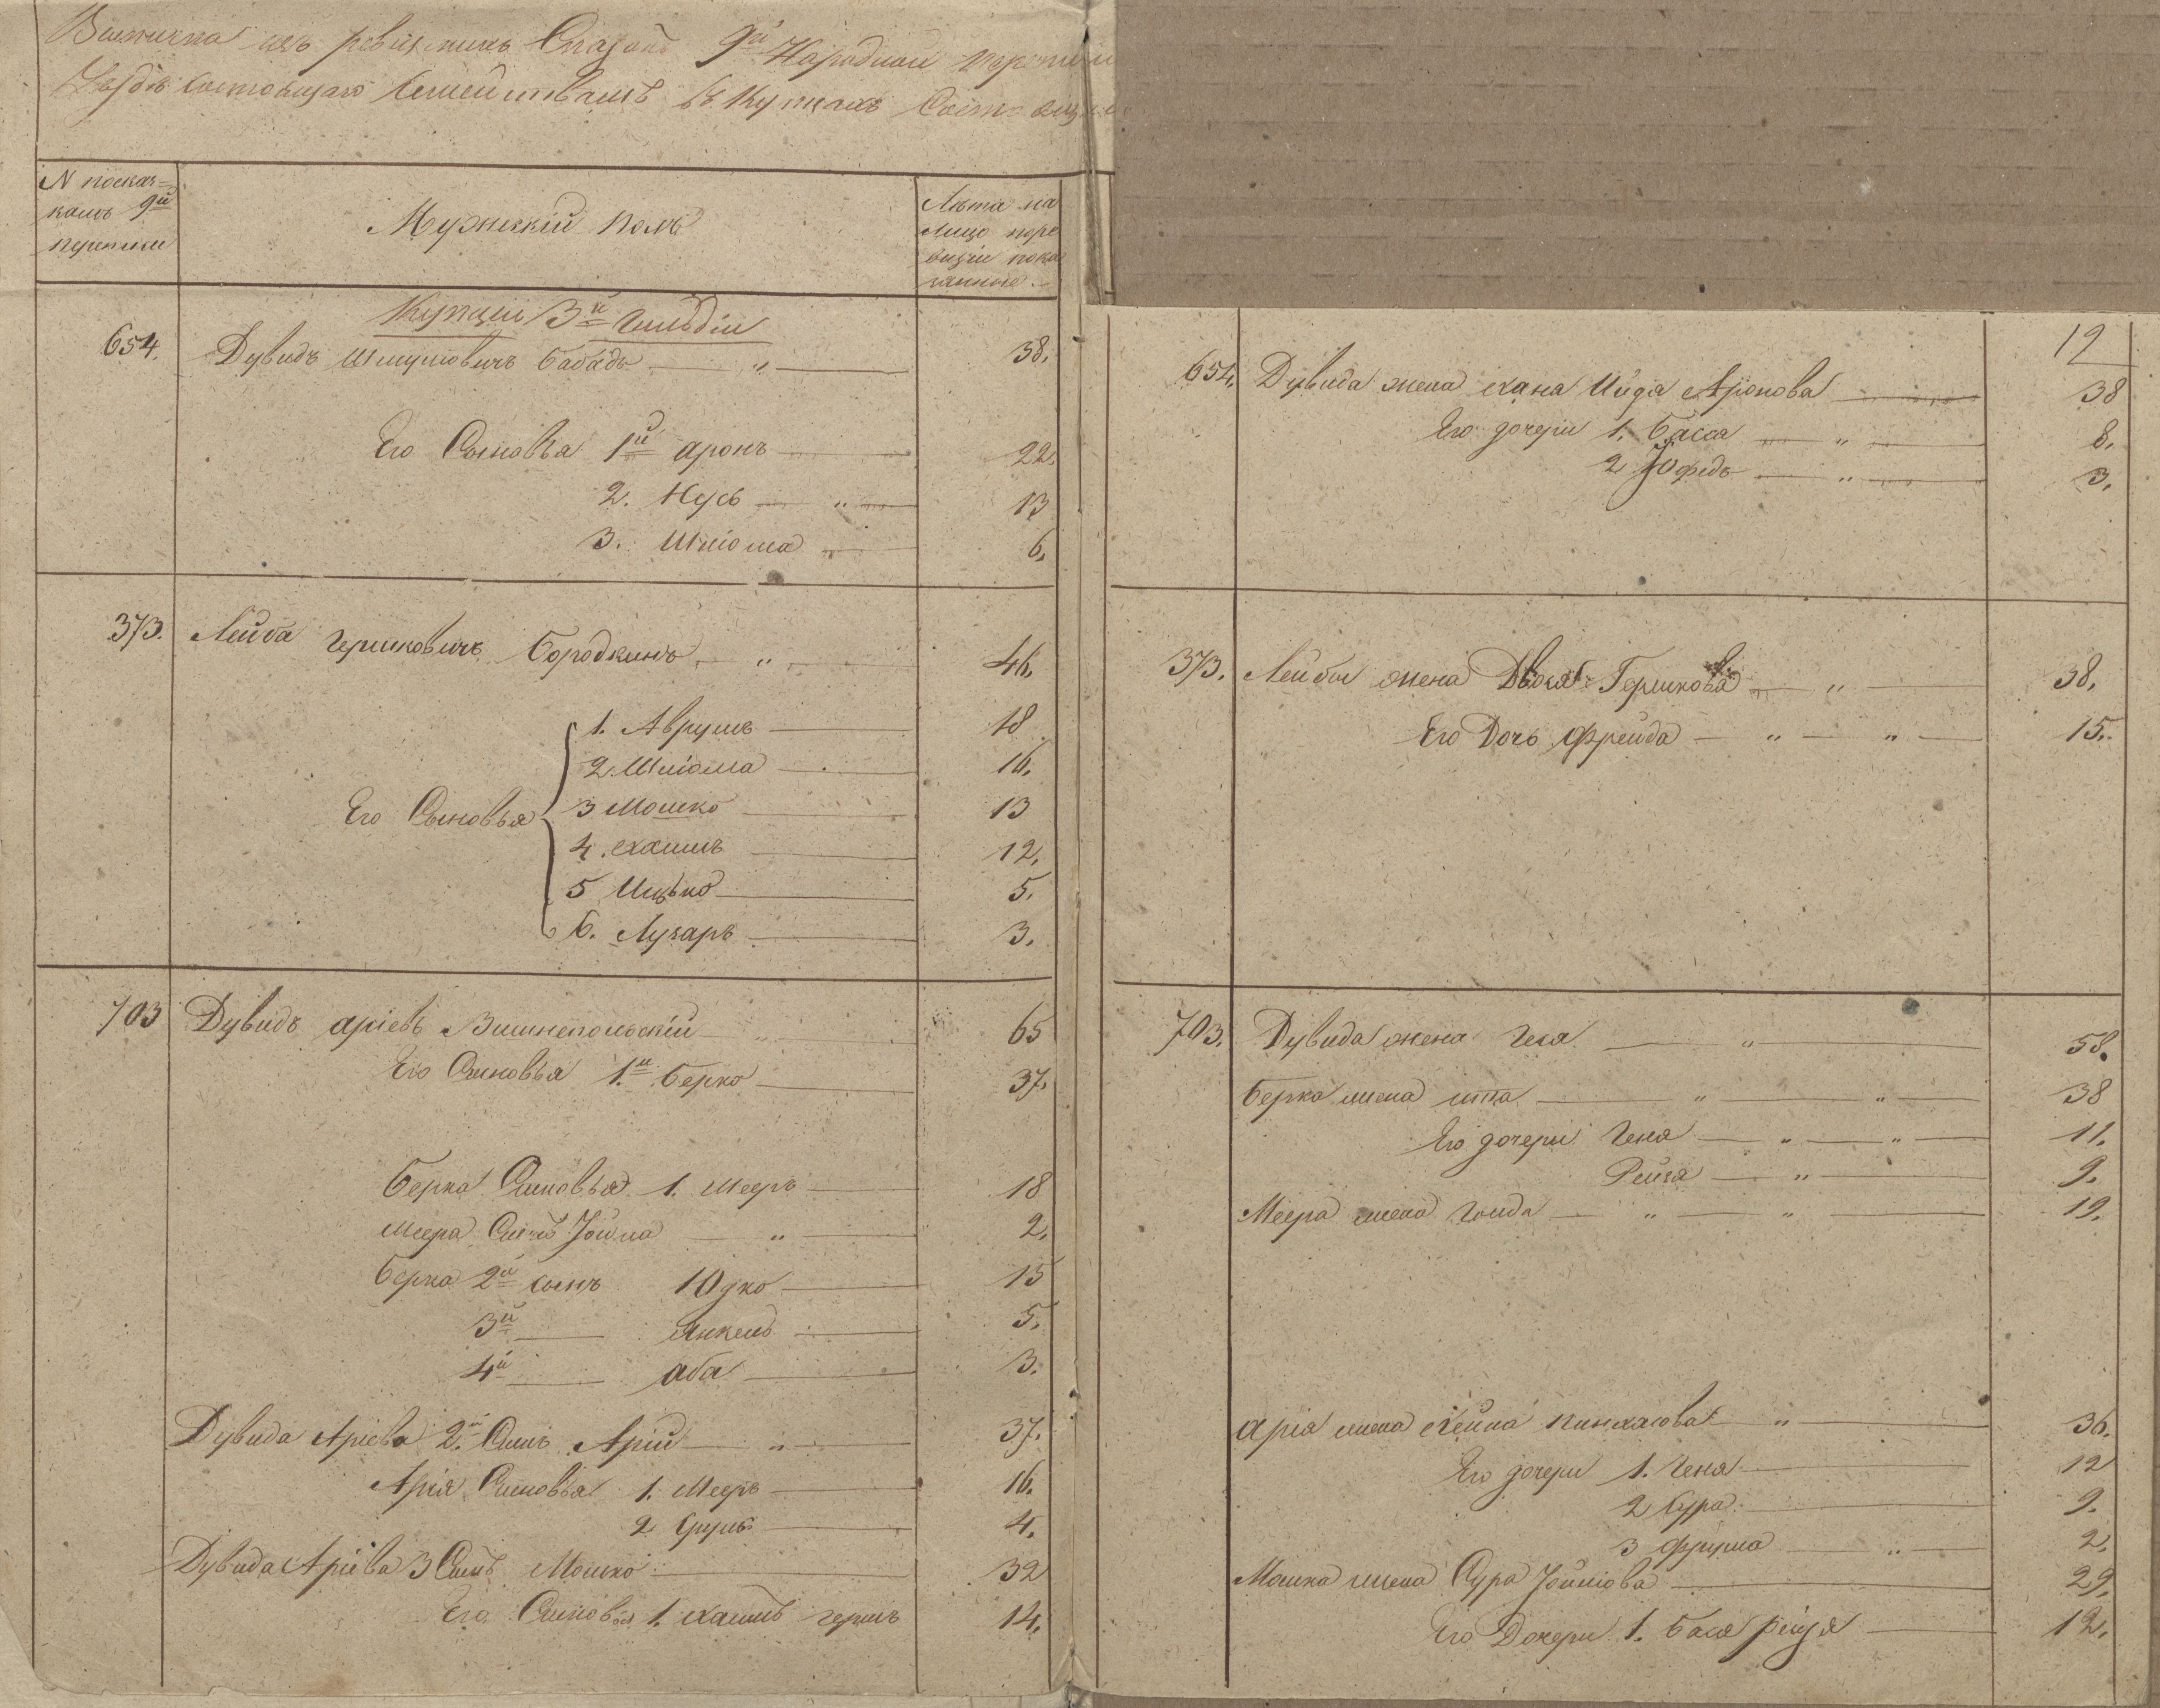 Выписка изъ ревизскихъ Сказокъ 9й Народной переписи
Уездъ состоящаго Семействамъ въ Купцахъ Состоящ
N посказ=
камъ 9й
Мужескій полъ
Лѣта на
лицо по ре
визіи пока
занные
Купцы 3й Гильдіи
654. Дувидъ Шмулiовичъ Бабадъ — " — 38.
Его Сыновья 1й аронъ — 22.
2. Нусь — " — 13
3. Шліома — " — 6.
373. Лейба Гершковичъ Бородкинъ — " — 46.
1. Аврумъ — 18
2. Шліома — 16.
3 Мошко — 13
Его Сыновья
4. Хаимъ — 12.
5 Ицько — 5.
6. Лузаръ — 3.
703 Дувидъ аріевъ Вишнепольскій — " — 65
Его Сыновья 1.й Берко — 37.
Берка Сыновья 1. Мееръ — 18
Меера Сынъ Іойна — " — 2.
Берка 2й сынъ Юдко — 15
3й — Янкель — 5.
4й — аба — 3.
Дувида Аріева 2.й Сынъ Арій — " — 37.
Арія Сыновья 1. Мееръ — 16.
2 Сруль — 4.
Дувида Аріева 3 Сынъ Мошко — 32
Его Сыновья 1. Хаимъ гершъ 14.
12
654. Дувида жена Хана Аронова — 38
Его дочери 1. Басса — " — 8.
2 — " — 3.
373. Лейбы жена Двося Гершкова — " — 38.
Его Дочь Фрейда — " — " — 15.
703. Дувида жена Геся — " — 58.
Берка жена ита — " — " — 38
Его дочери Геня — " — " — 11.
Рейзя — " — 9.
Меера жена — " — " — 19.
арія жена Хейна Пинхасова — " — 36.
Его дочери 1. Геня — 12
2 Сура — 9.
3 Фрума — " — 2.
Мошка жена Сура — 29.
Его Дочери 1. Бася рейзя — 12.